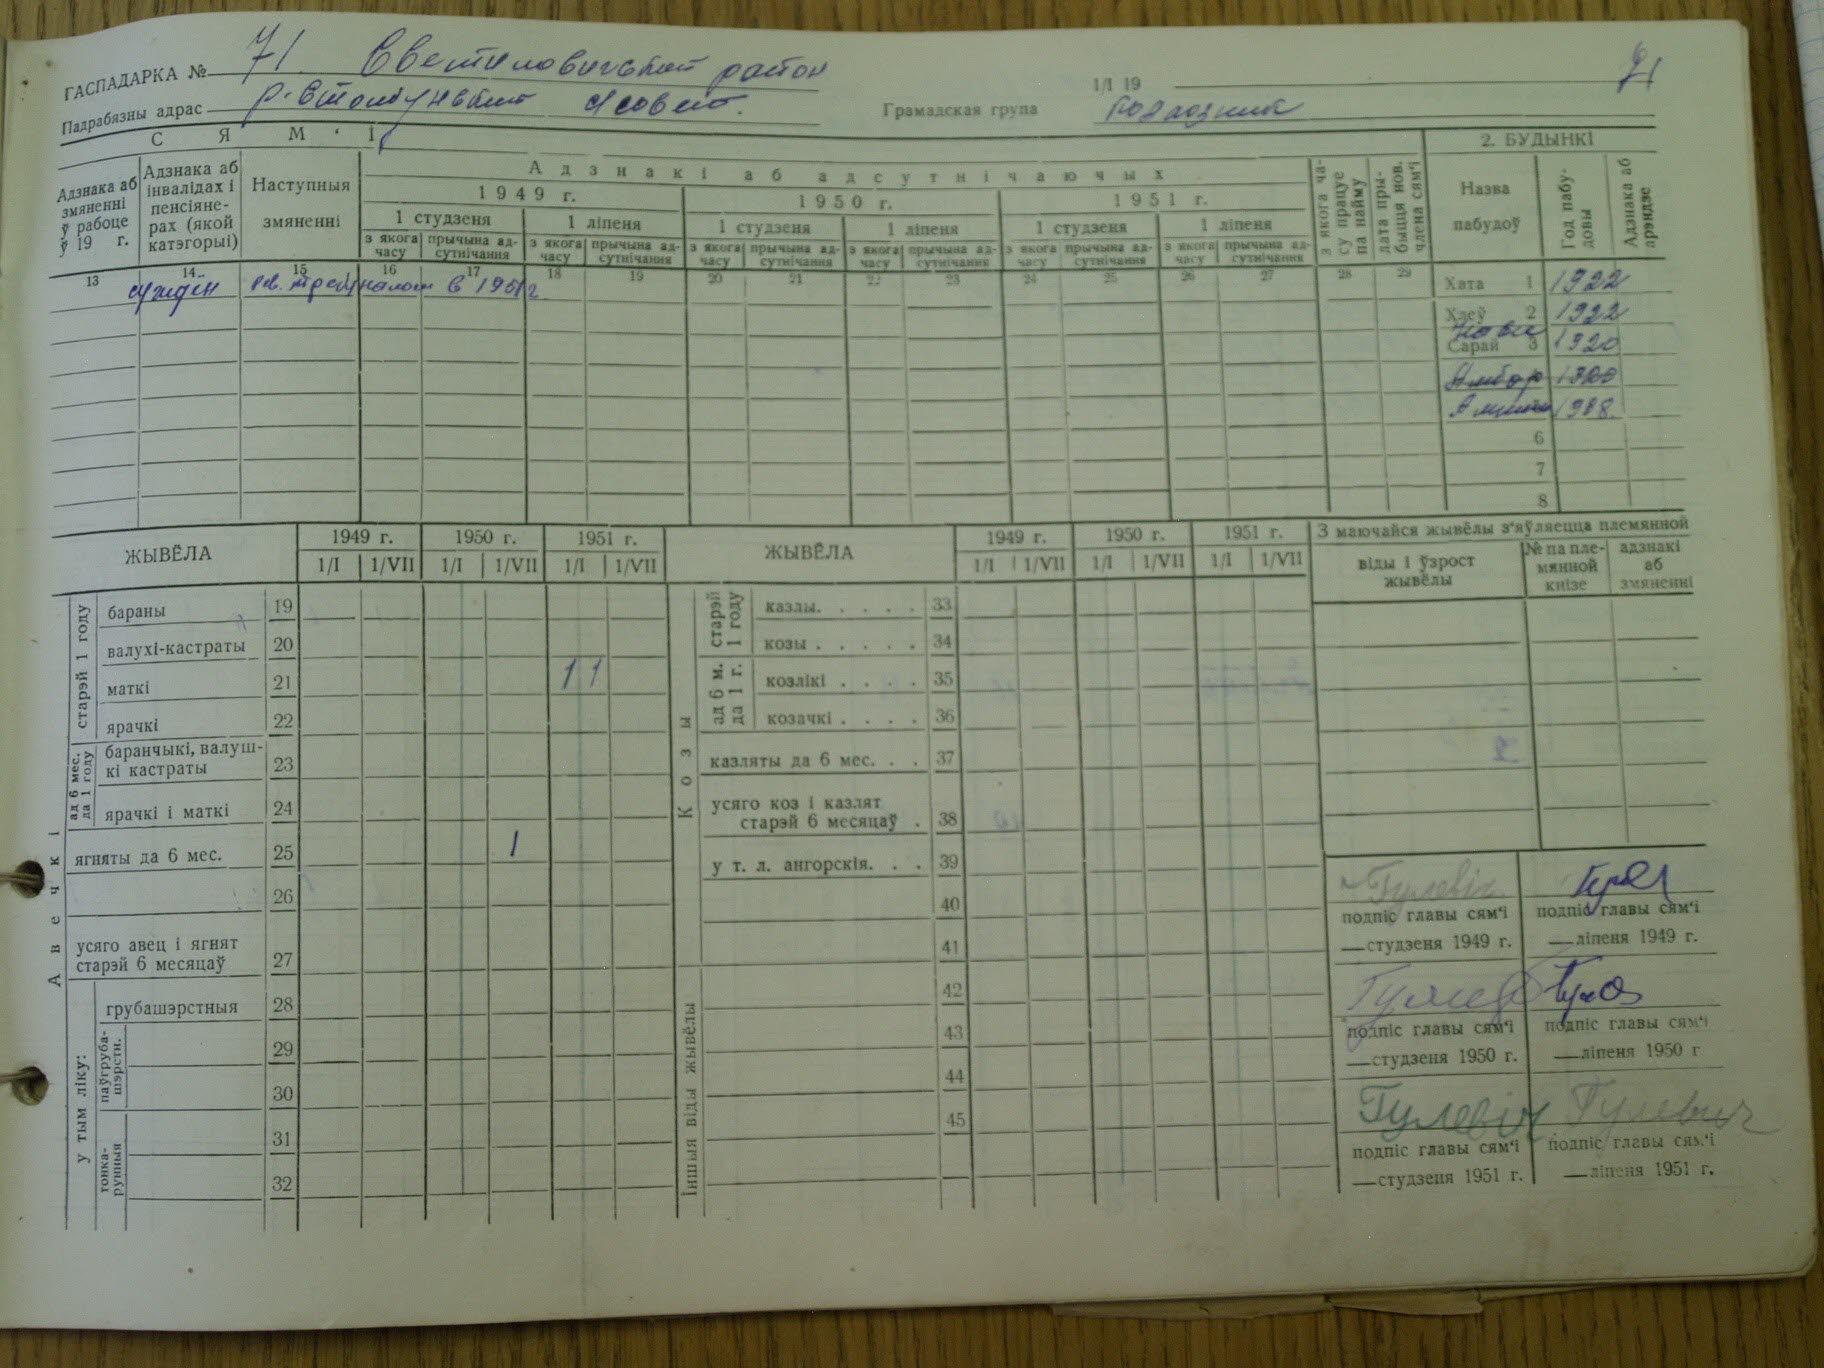 ГАСПАДАРКА № 71 Светиловичский район 1/I 19 71
Падрабязны адрас с/совет. Грамадская група
С Я М ' І
Адзнака аб змяненні ў рабоце ў 19 г.
Адзнака аб інвалідах і пенсіяне-рах (якой катэгорыі)
Наступныя змяненні
Адзнакі аб адсутнічаючых
1949 г. 1950 г. 1951 г.
1 студзеня 1 ліпеня 1 студзеня 1 ліпеня 1 студзеня 1 ліпеня
з якога часу прычына ад-сутнічання з якога часу прычына ад-сутнічання з якога часу прычына ад-сутнічання з якога часу прычына ад-сутнічання з якога часу прычына ад-сутнічання з якога часу прычына ад-сутнічання
з якога ча-су працуе па найму
дата пры-быцця нов. члена сям'і
2. БУДЫНКІ
Назва пабудоў
Год пабу-довы
Адзнака аб арэндзе
13 14 15 16 17 18 19 20 21 22 23 24 25 26 27 28 29
в 1951 г
Хата 1 1922
Хлеў 2 1922
Сарай 3 1920
Амбар
6
7
8
ЖЫВЁЛА
1949 г. 1950 г. 1951 г.
1/I 1/VII 1/I 1/VII 1/I 1/VII
Авечкі
старэй 1 году
бараны 19
валухі-кастраты 20
маткі 21 1 1
ярачкі 22
ад 6 мес. да 1 году
баранчыкі, валуш-кі кастраты 23
ярачкі і маткі 24
ягняты да 6 мес. 25 1
26
усяго авец і ягнят
старэй 6 месяцаў 27
у тым ліку:
грубашэрстныя 28
паўгруба-шэрстн.
29
30
тонка-рунныя
31
32
ЖЫВЁЛА
1949 г. 1950 г. 1951 г.
1/I 1/VII 1/I 1/VII 1/I 1/VII
Козы
старэй 1 году
казлы. . . . . 33
козы . . . . . 34
ад 6 м. да 1 г.
козлікі . . . . 35
козачкі . . . . 36
казляты да 6 мес. . . 37
усяго коз і казлят
старэй 6 месяцаў . 38
у т. л. ангорскія. . . 39
40
41
Іншыя віды жывёлы
42
43
44
45
З маючайся жывёлы з'яўляецца племянной
віды і ўзрост жывёлы
№ па пле-мянной кнізе
адзнакі аб змяненні
Гулевіч
подпіс главы сям'і подпіс главы сям'і
—студзеня 1949 г. —ліпеня 1949 г.
подпіс главы сям'і подпіс главы сям'і
—студзеня 1950 г. —ліпеня 1950 г
Гулевіч Гулевич
подпіс главы сям'і подпіс главы сям'і
—студзеня 1951 г. —ліпеня 1951 г.